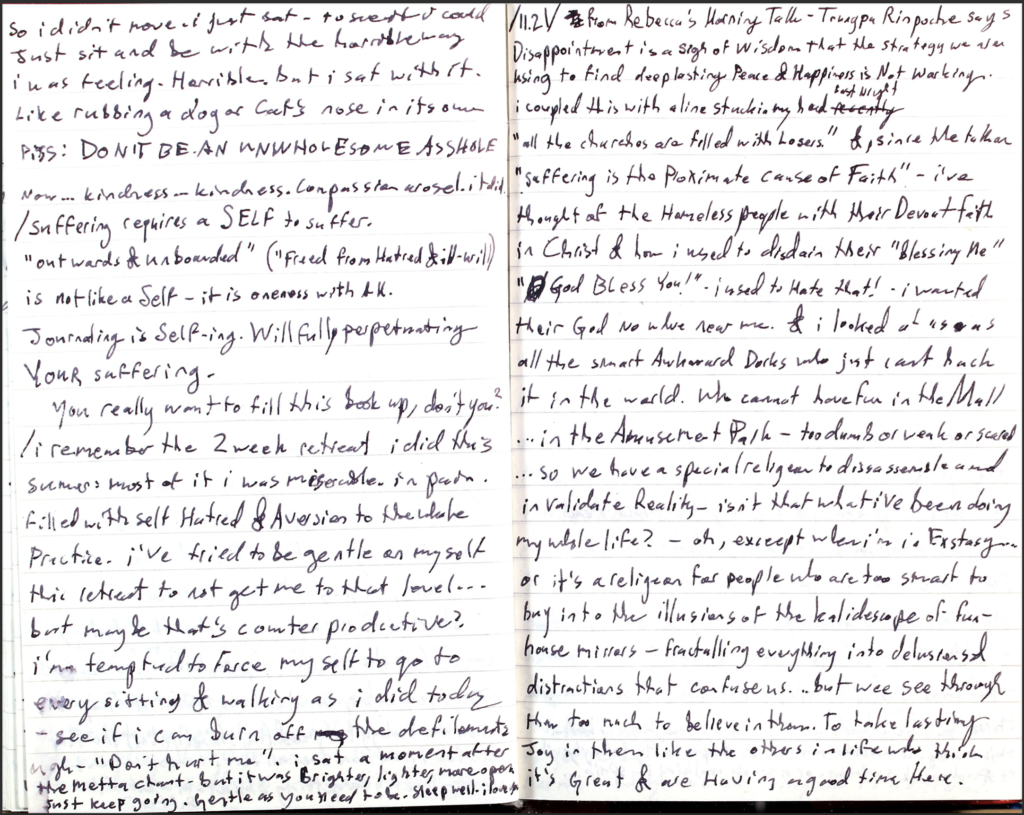 So i didn't move - i just sat - to see if i could
Just sit and be with the horrible way
i was feeling. Horrible. but i sat with it.
Like rubbing a dog or Cat's nose in its own
PISS: DON'T BE AN UNWHOLESOME ASSHOLE
Now... kindness - kindness. Compassion arose. it did.
/Suffering requires a SELF to suffer.
"outwards & unbounded" ("Freed from Hatred & ill-will)
is not like a Self - it is oneness with
Journaling is Self-ing. Willfully perpetuating
YOUR suffering.
You really want to fill this book up, don't you?
/i remember the 2 week retreat i did this
summer: most of it i was miserable. in pain.
Filled with self Hatred & Aversion to the whole
Practice. i've tried to be gentle on myself
this retreat to not get me to that level...
but maybe that's counter productive?
i'm tempted to Force myself to go to
every sitting & walking as i did today
- see if i can burn off the defilements
ugh - "Don't hurt me". i sat a moment after
the metta chant - but it was Brighter, lighter, more open
Just keep going. Gentle as you need to be. Sleep well. i love
/11.2V From Rebecca's Morning Talk - Trungpa Rinpoche says
Disappointment is a sign of Wisdom that the strategy we are
using to find deep lasting Peace & Happiness is Not working.
i coupled this with a line stuck in my head recently last night
"all the churches are filled with Losers." &, since the talk on
"suffering is the Proximate cause of Faith" - i've
thought of the Homeless people with their Devout faith
in Christ & how i used to disdain their "Blessing Me"
"God Bless You!" - i used to Hate that! - i wanted
their God no where near me. & i looked at us as
all the smart Awkward Dorks who just can't hack
it in the world. Who cannot have fun in the Mall
...in the Amusement Park - too dumb or weak or scared
...so we have a special religion to dissassemble and
invalidate Reality - isn't that what i've been doing
my whole life? - oh, except when i'm in Extasy...
or it's a religion for people who are too smart to
buy into the illusions of the kalidescope of fun-
house mirrors - fractalling everything into delusional
distractions that confuse us... but wee see through
them too much to believe in them. To take lasting
Joy in them like the others in life who think
it's Great & are Having a good time there.